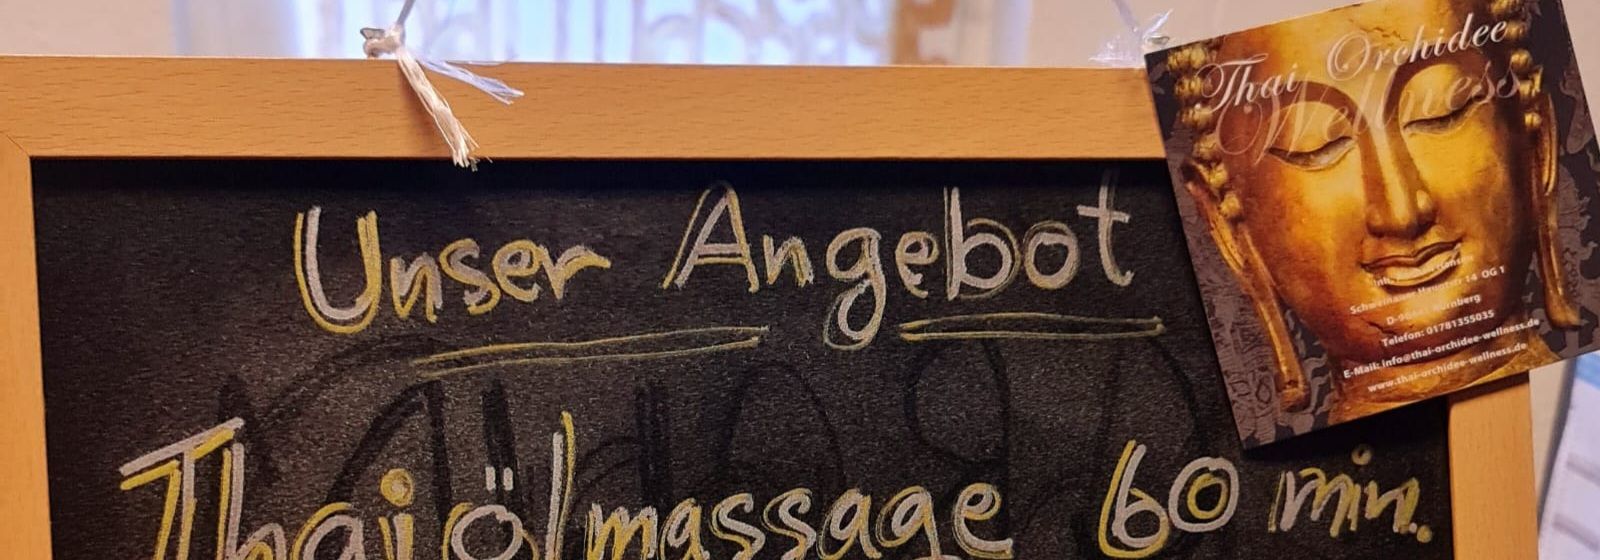 Unser Angebot
Thaiölmassage 60 min.
Thai Orchidee
Wellness
Schweinauer Hauptstr 14 OG 1
Nürnberg
Telefon: 01781355035
E-Mail: info@thai-orchidee-wellness.de
www.thai-orchidee-wellness.de